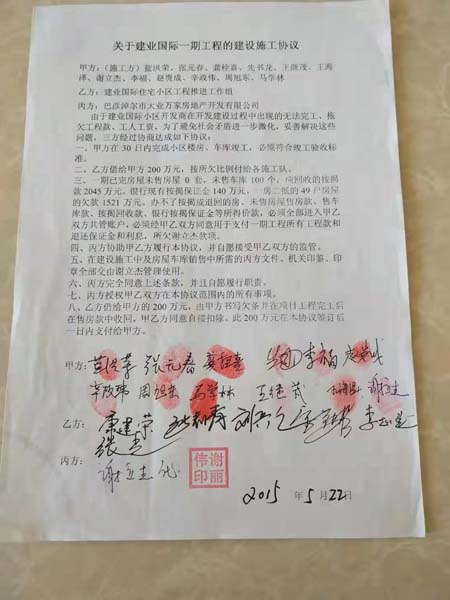 关于建业国际一期工程的建设施工协议
甲方：（施工方）蓝洪荣、张元春、龚栓喜、先书龙、王继茂、王海
泽、谢立杰、李福、赵贵成、辛政伟、周旭东、马学林
乙方：建业国际住宅小区工程推进工作组
丙方：巴彦淖尔市大业万家房地产开发有限公司
由于建业国际小区开发商在开发建设过程中出现的无法完工、拖
欠工程款、工人工资，为了避免社会矛盾进一步激化，妥善解决这些
问题，三方经过协商达成如下协议：
一、甲方在 30 日内完成小区楼房、车库竣工，必须符合竣工验收标
准。
二、乙方借给甲方 200 万元，按所欠比例付给各施工队。
三、一期已完房屋未售房屋 0 套，未售车库 100 个，应回收的按揭
款 2045 万元，银行现有按揭保证金 140 万元，一房二抵的 49 户房屋
的欠款 1521 万元，办不了按揭或退回的房、未售房屋售房款、售车
库款、按揭回收款、银行按揭保证金等所得价款，必须全部进入甲乙
双方共管账户，必须经甲乙双方同意用于支付一期工程所有工程款和
退还保证金和利息，所欠谢立杰款项。
四、丙方协助甲乙方履行本协议，并自愿接受甲乙双方的监管。
五、在建设施工中及房屋车库销售中所需的丙方文件、机关印鉴、印
章全部交由谢立杰管理使用。
六、丙方完全同意上述条款，并且自愿履行职责。
七、丙方授权甲乙双方在本协议范围内的所有事项。
八、乙方借给甲方的 200 万元，由甲方书写欠条并在项目工程完工后
在售房款中收回，甲乙方同意直接扣除。此 200 万元在本协议签订后
一日内支付给甲方。
甲方： 张元春 李福
辛政玮 周旭东 马学林 王继茂 谢立杰
乙方： 康建荣
丙方：
谢丽
伟印
2015 年 5 月 22 日